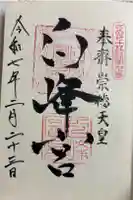 奉齋 崇徳天皇
白峰宮
令和七年二月二十三日